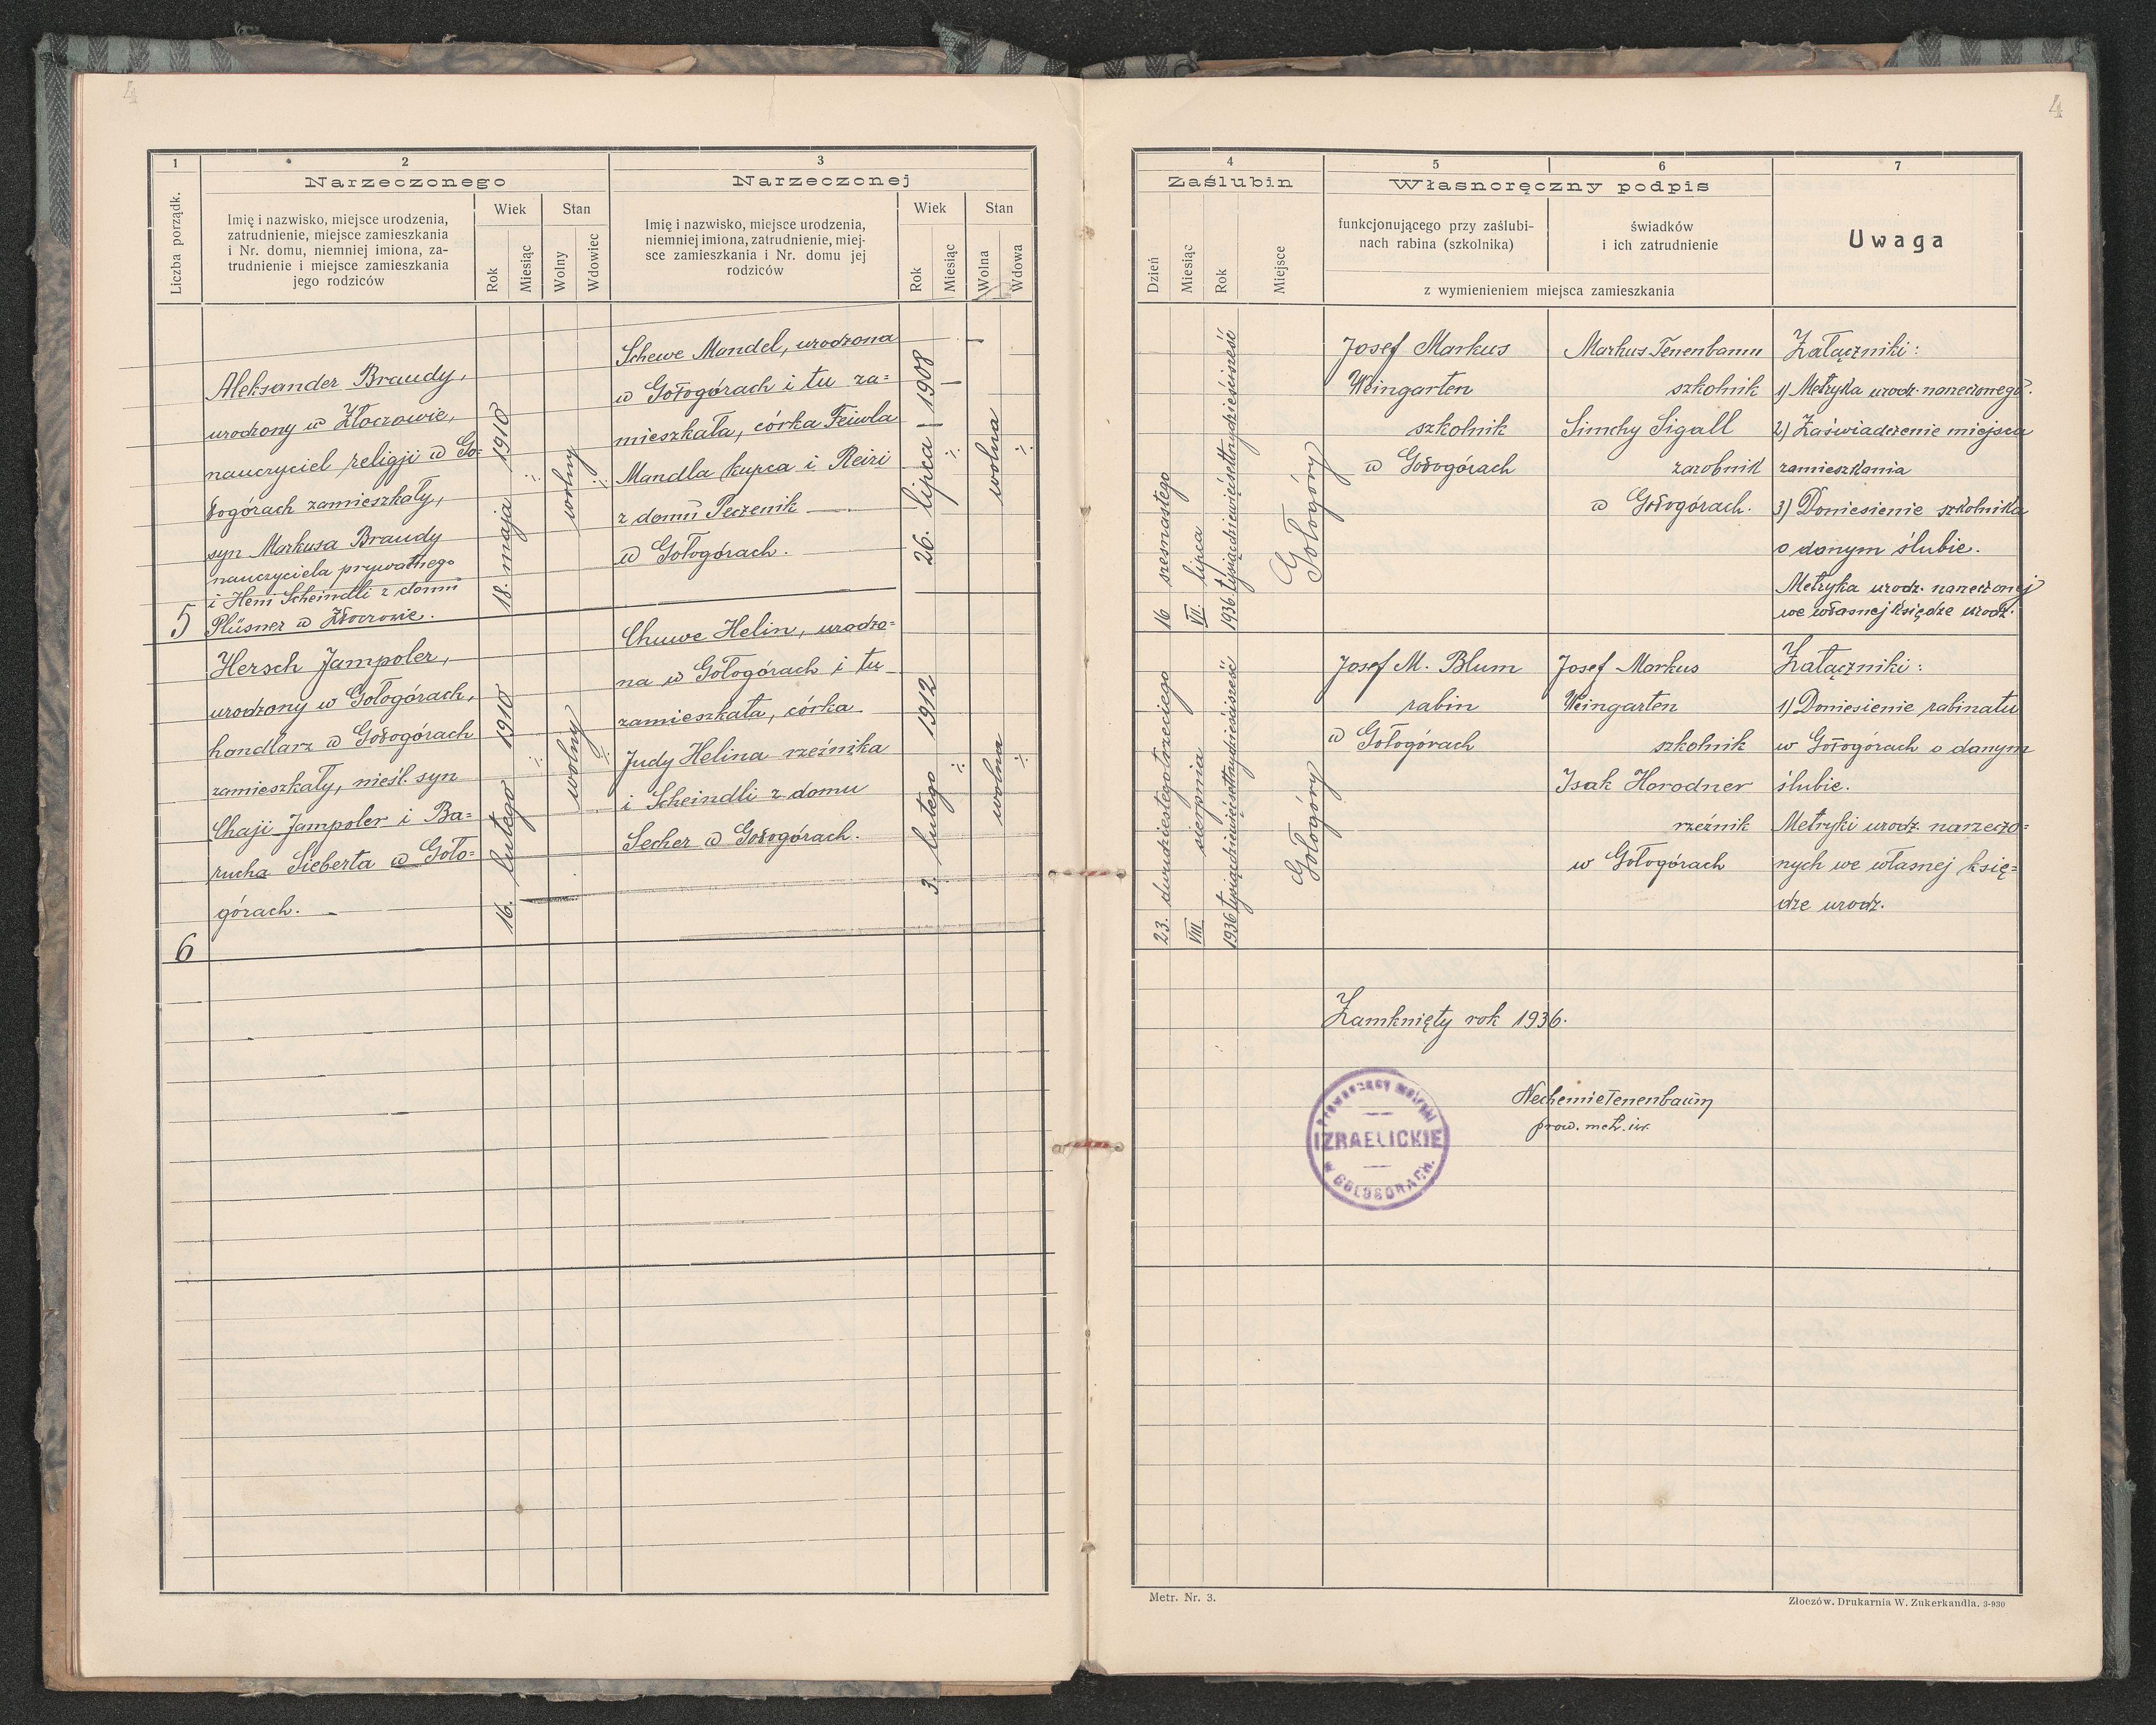 4
4
1
2
3
Narzeczonego
Narzeczonej
Liczba porządk.
Imię i nazwisko, miejsce urodzenia,
zatrudnienie, miejsce zamieszkania
i Nr. domu, niemniej imiona, za-
trudnienie i miejsce zamieszkania
jego rodziców
Wiek
Stan
Rok
Miesiąc
Wolny
Wdowiec
Imię i nazwisko, miejsce urodzenia,
niemniej imiona, zatrudnienie, miej-
sce zamieszkania i Nr. domu jej
rodziców
Wiek
Stan
Rok
Miesiąc
Wolna
Wdowa
Aleksander Braudy,
urodzony w Złoczowie,
nauczyciel religji w Go-
łogórach zamieszkały,
syn Markusa Braudy
nauczyciela prywatnego
i Heni Scheindli z domu
Plüsner w Złoczowie.
5
18. maja 1910
wolny
Schewe Mandel, urodzona
w Gołogórach i tu za=
mieszkała, córka Feiwla
Mandla kupca i Reizi
z domu Peczenik
w Gołogórach.
26. lipca 1908
wolna
Hersch Jampoler,
urodzony w Gołogórach,
handlarz w Gołogórach
zamieszkały, nieśl. syn
Chaji Jampoler i Ba=
rucha Sieberta w Goło=
górach.
6
16. lutego 1910
wolny
Chuwe Helin, urodzo=
na w Gołogórach i tu
zamieszkała, córka
Judy Helina rzeźnika
i Scheindli z domu
Secher w Gołogórach.
3. lutego 1912
wolna
4
5
6
7
Zaślubin
Własnoręczny podpis
Uwaga
Dzień
Miesiąc
Rok
Miejsce
funkcjonującego przy zaślubi-
nach rabina (szkolnika)
świadków
i ich zatrudnienie
z wymienieniem miejsca zamieszkania
16 szesnastego
VII. lipca
1936 tysiącdziewięćsettrzydzieścisześć
Gołogóry
Josef Markus
Weingarten
szkolnik
w Gołogórach
Markus Tenenbaum
szkolnik
Simchy Sigall
zarobnik
w Gołogórach.
Załączniki:
1) Metryka urodz. narzeczonego.
2) Zaświadczenie miejsca
zamieszkania
3) Doniesienie szkolnika
o danym ślubie.
Metryka urodz. narzeczonej
we własnej księdze urodz.
23. dwudziestegotrzeciego
VIII. sierpnia
1936 tysiącdziewięćsettrzydzieścisześć
Gołogóry
Josef M. Blum
rabin
w Gołogórach
Josef Markus
Weingarten
szkolnik
Isak Horodner
rzeźnik
w Gołogórach
Załączniki:
1) Doniesienie rabinatu
w Gołogórach o danym
ślubie.
Metryki urodz. narzeczo=
nych we własnej księ=
dze urodz.
Zamknięty rok 1936.
Nechemie Tenenbaum
prow. metr. izr.
Prowadzący metryki
IZRAELICKIE
w GOŁOGÓRACH.
Metr. Nr. 3.
Złoczów. Drukarnia W. Zukerkandla. 3-930